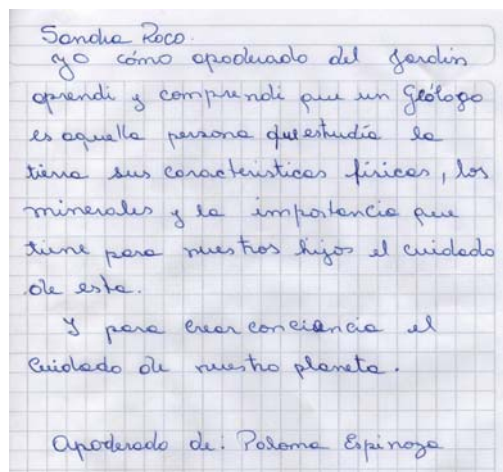 Sandra Roco.
yo cómo apoderado del Jardín
aprendi y comprendi que un Geólogo
es aquella persona que estudia la
tierra sus caracteristicas físicas, los
minerales y la importancia que
tiene para nuestros hijos el cuidado
de esta.
Y para crear conciencia el
Cuidado de nuestro planeta.
Apoderado de: Paloma Espinoza